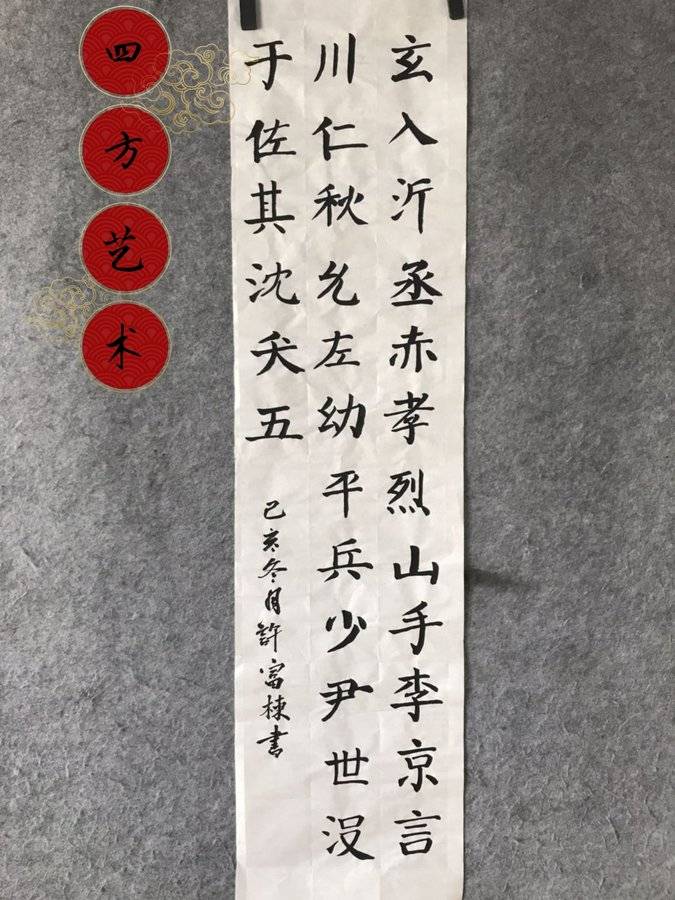 四方艺术
玄入沂丞赤孝烈山手李京言
川仁秋允左幼平兵少尹世没
于佐其沈夭五
己亥冬月許富棟書